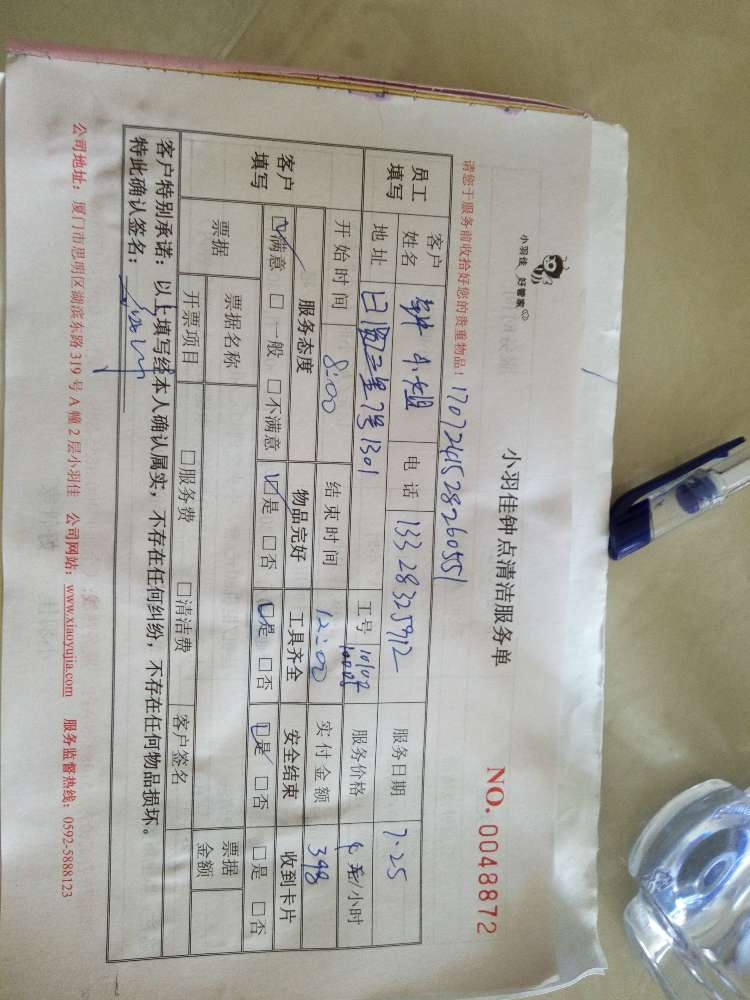 小羽佳 好管家
小羽佳钟点清洁服务单
NO. 0048872
请您于服务前收拾好您的贵重物品！ 170724528260551
员工填写 客户姓名 小姐 电话 13328325912 服务日期 7.25
地址 3号1301 工号 服务价格 元/小时
客户填写 开始时间 8:00 结束时间 12:00 实付金额 398
服务态度 物品完好 工具齐全 安全结束 收到卡片
☑满意 □一般 □不满意 ☑是 □否 ☑是 □否 ☑是 □否 □是 □否
票据 票据名称 票据金额
开票项目 □服务费 □清洁费 客户签名
客户特别承诺：以上填写经本人确认属实，不存在任何纠纷，不存在任何物品损坏。
特此确认签名：
公司地址：厦门市思明区湖滨东路 319 号 A 幢 2 层小羽佳 公司网站：www.xiaoyujia.com 服务监督热线：0592-5888123